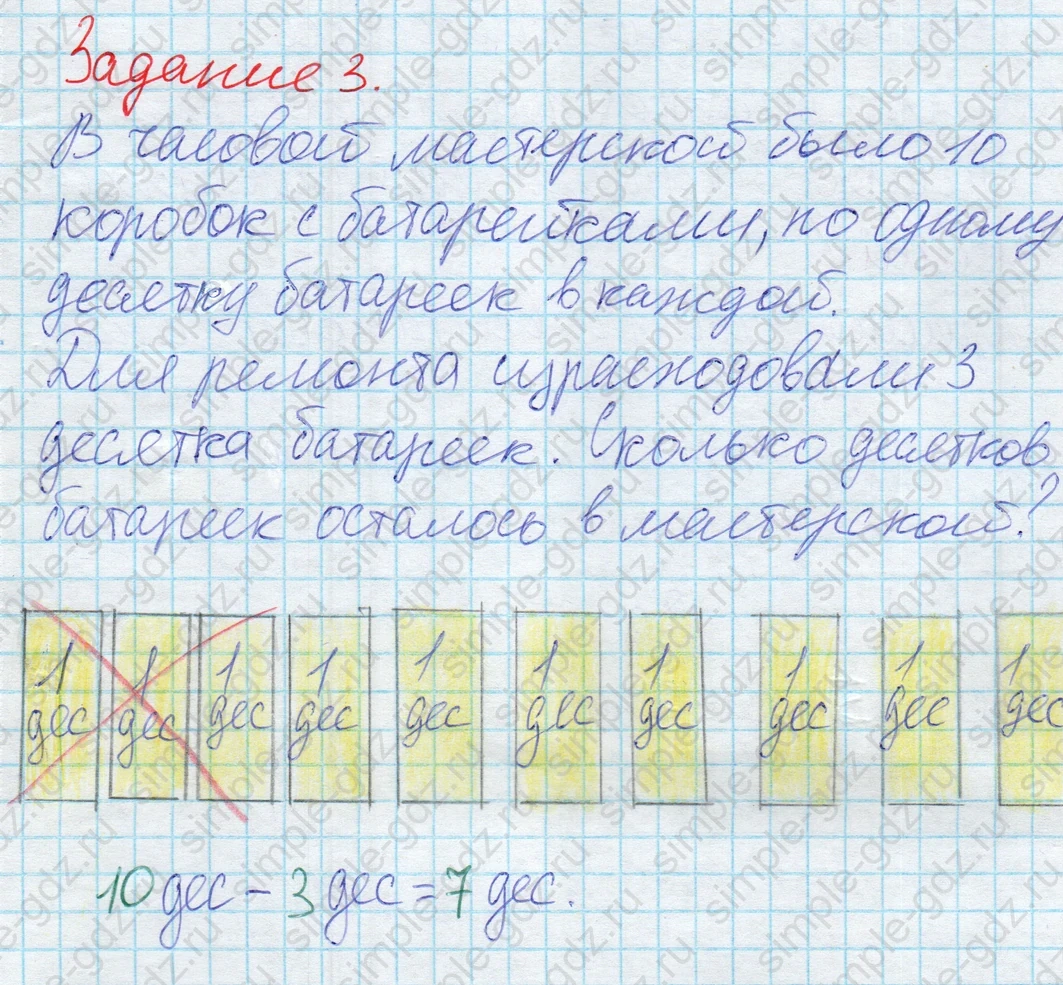 Задание 3.
В часовой мастерской было 10
коробок с батарейками, по одному
десятку батареек в каждой.
Для ремонта израсходовали 3
десятка батареек. Сколько десятков
батареек осталось в мастерской?
1 1 1 1 1 1 1 1 1 1
дес дес дес дес дес дес дес дес дес дес
10 дес - 3 дес = 7 дес.
simple-gdz.ru